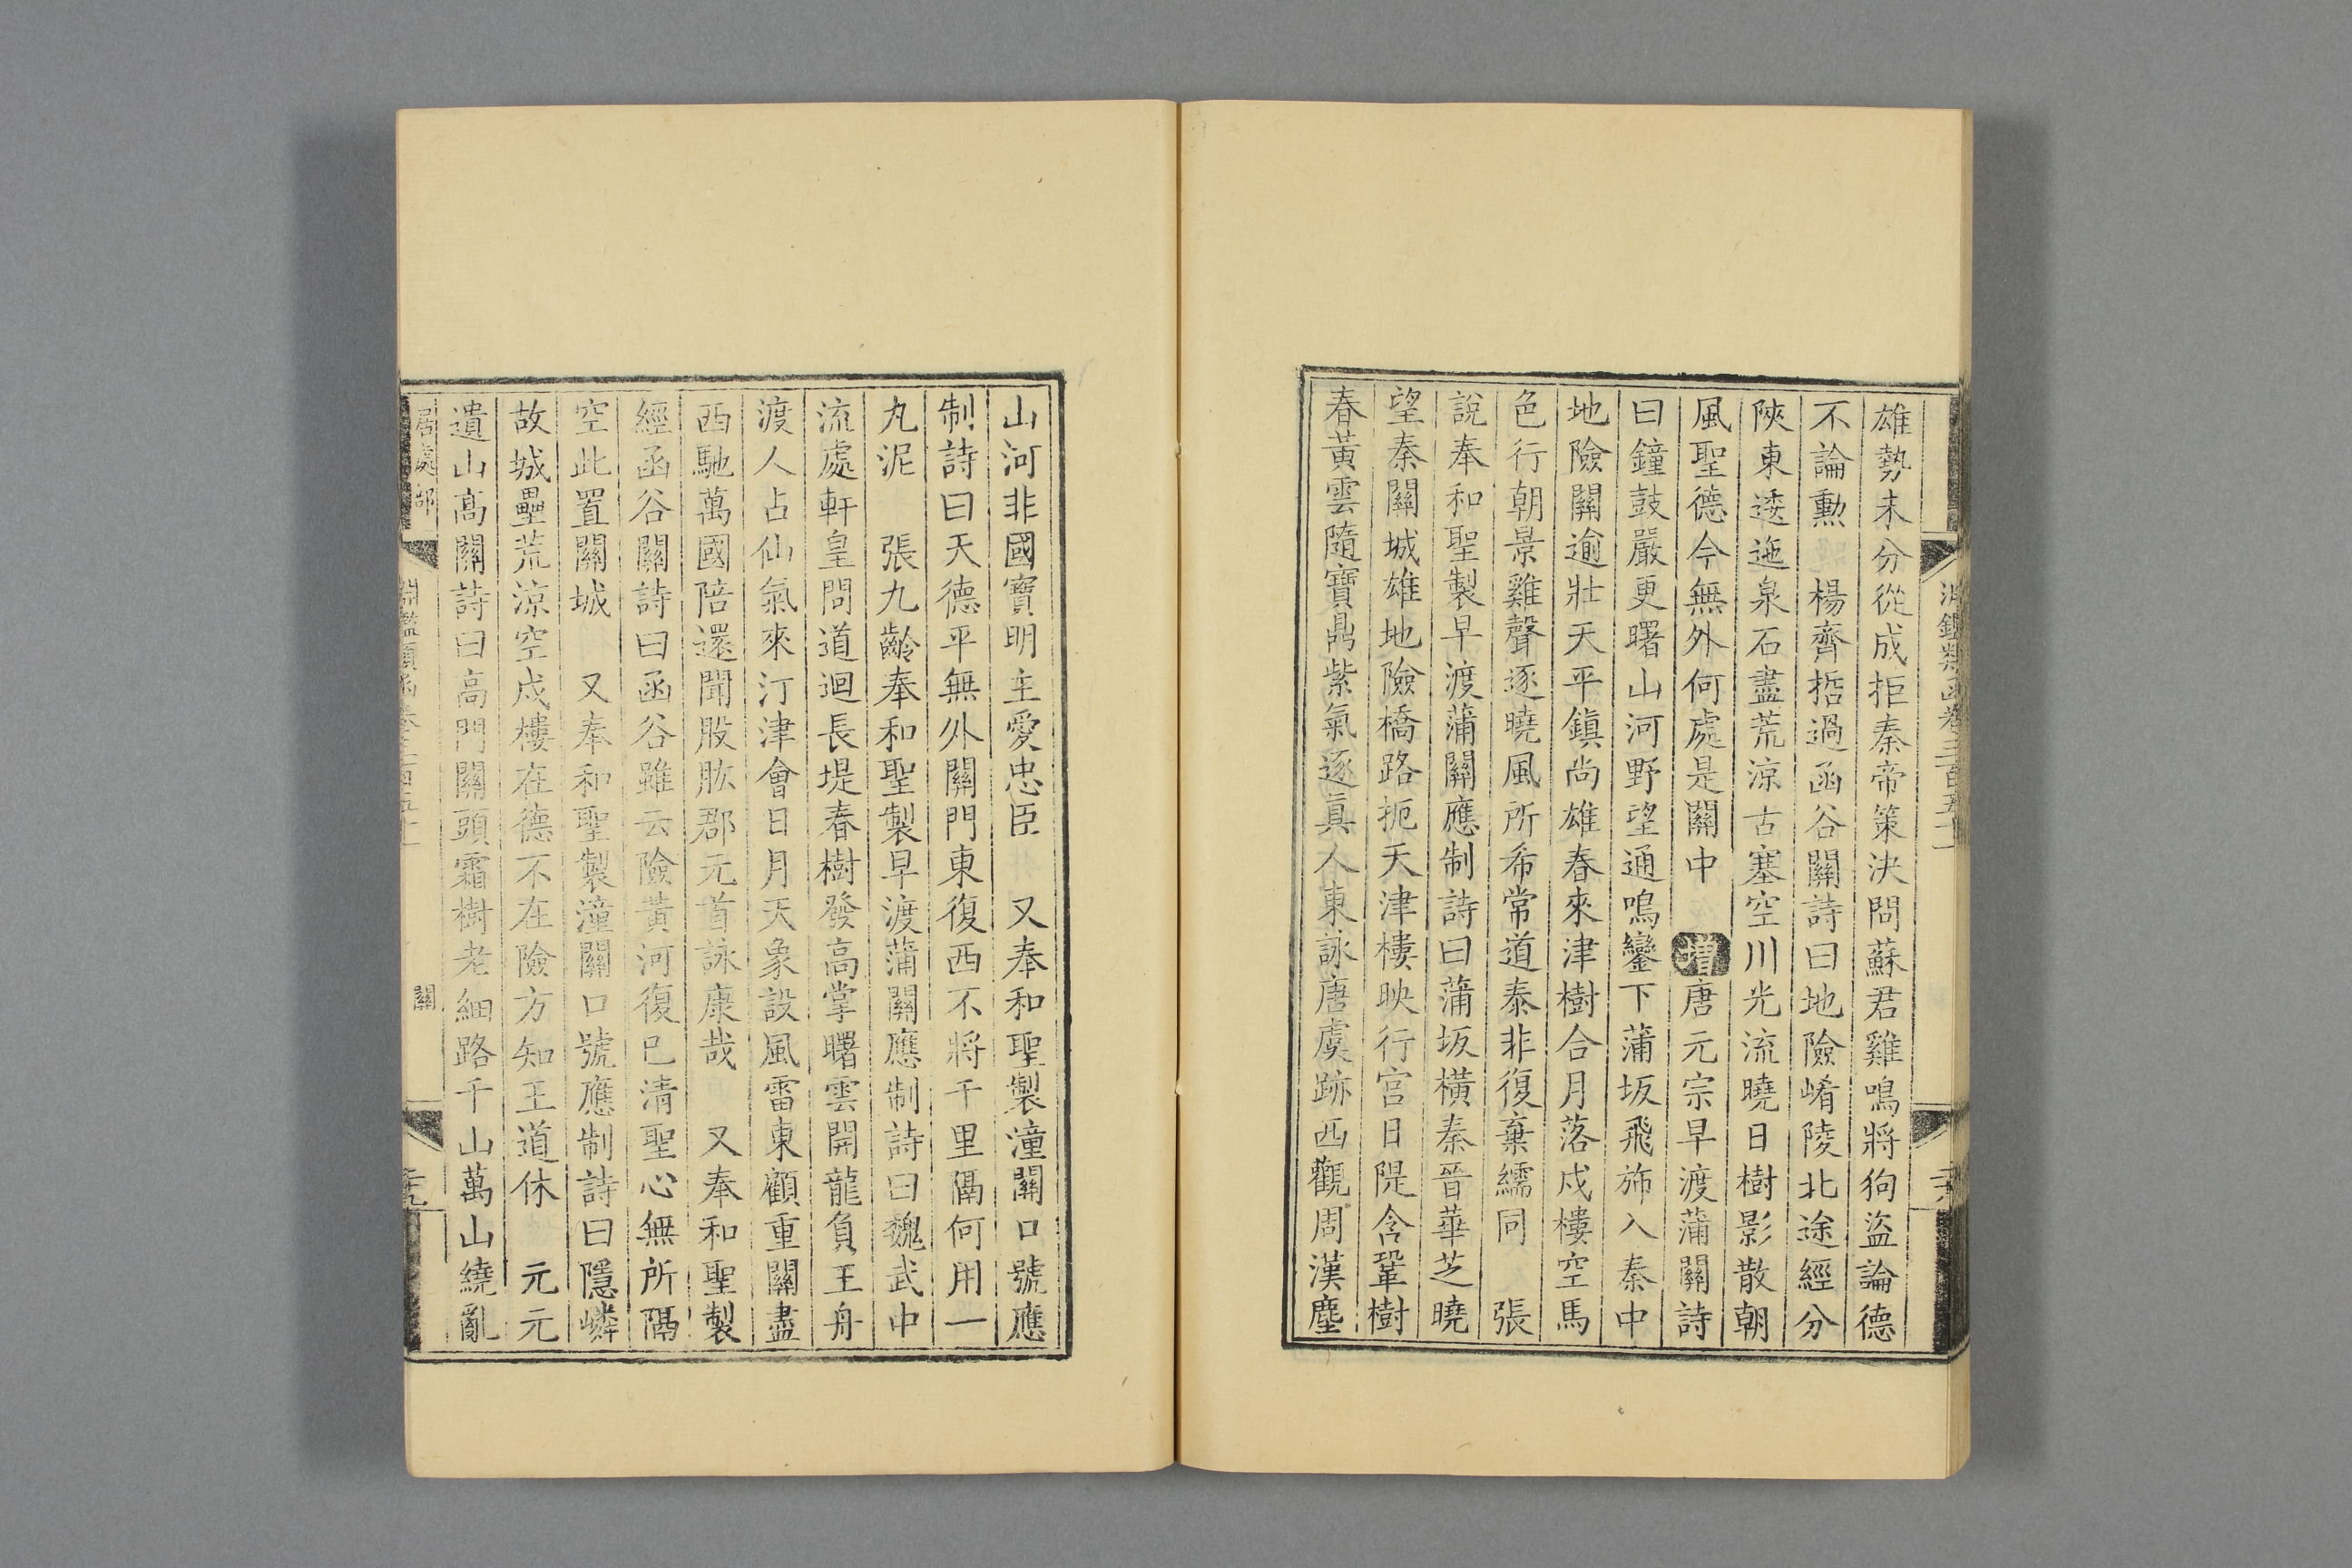 雄勢未分從成拒秦帝策決問蘇君雞鳴將狗盜論德
不論勳　楊齊悊過函谷關詩曰地險崤陵北途經分
陝東逶迤泉石盡荒涼古塞空川光流曉日樹影散朝
風聖德今無外何處是關中　增唐元宗早渡蒲關詩
曰鐘鼓嚴更曙山河野望通鳴鑾下蒲坂飛旆入秦中
地險關逾壯天平鎮尚雄春來津樹合月落戍樓空馬
色行朝景雞聲逐曉風所希常道泰非復棄繻同　張
說奉和聖製早渡蒲關應制詩曰蒲坂橫秦晉華芝曉
望秦關城雄地險橋路扼天津樓映行宮日隄含鞏樹
春黃雲隨寶鼎紫氣逐真人東詠唐虞跡西觀周漢塵
山河非國寶明主愛忠臣　又奉和聖製潼關口號應
制詩曰天德平無外關門東復西不將千里隔何用一
丸泥　張九齡奉和聖製早渡蒲關應制詩曰魏武中
流處軒皇問道迴長堤春樹發高掌曙雲開龍負王舟
渡人占仙氣來汀津會日月天象設風雷東顧重關盡
西馳萬國陪還聞股肱郡元首詠康哉　又奉和聖製
經函谷關詩曰函谷雖云險黃河復已清聖心無所隔
空此置關城　又奉和聖製潼關口號應制詩曰隱嶙
故城壘荒涼空戍樓在德不在險方知王道休　元元
遺山高關詩曰高門關頭霜樹老細路千山萬山繞亂
居處部　淵鑑類函卷三百五十一　關　二十九